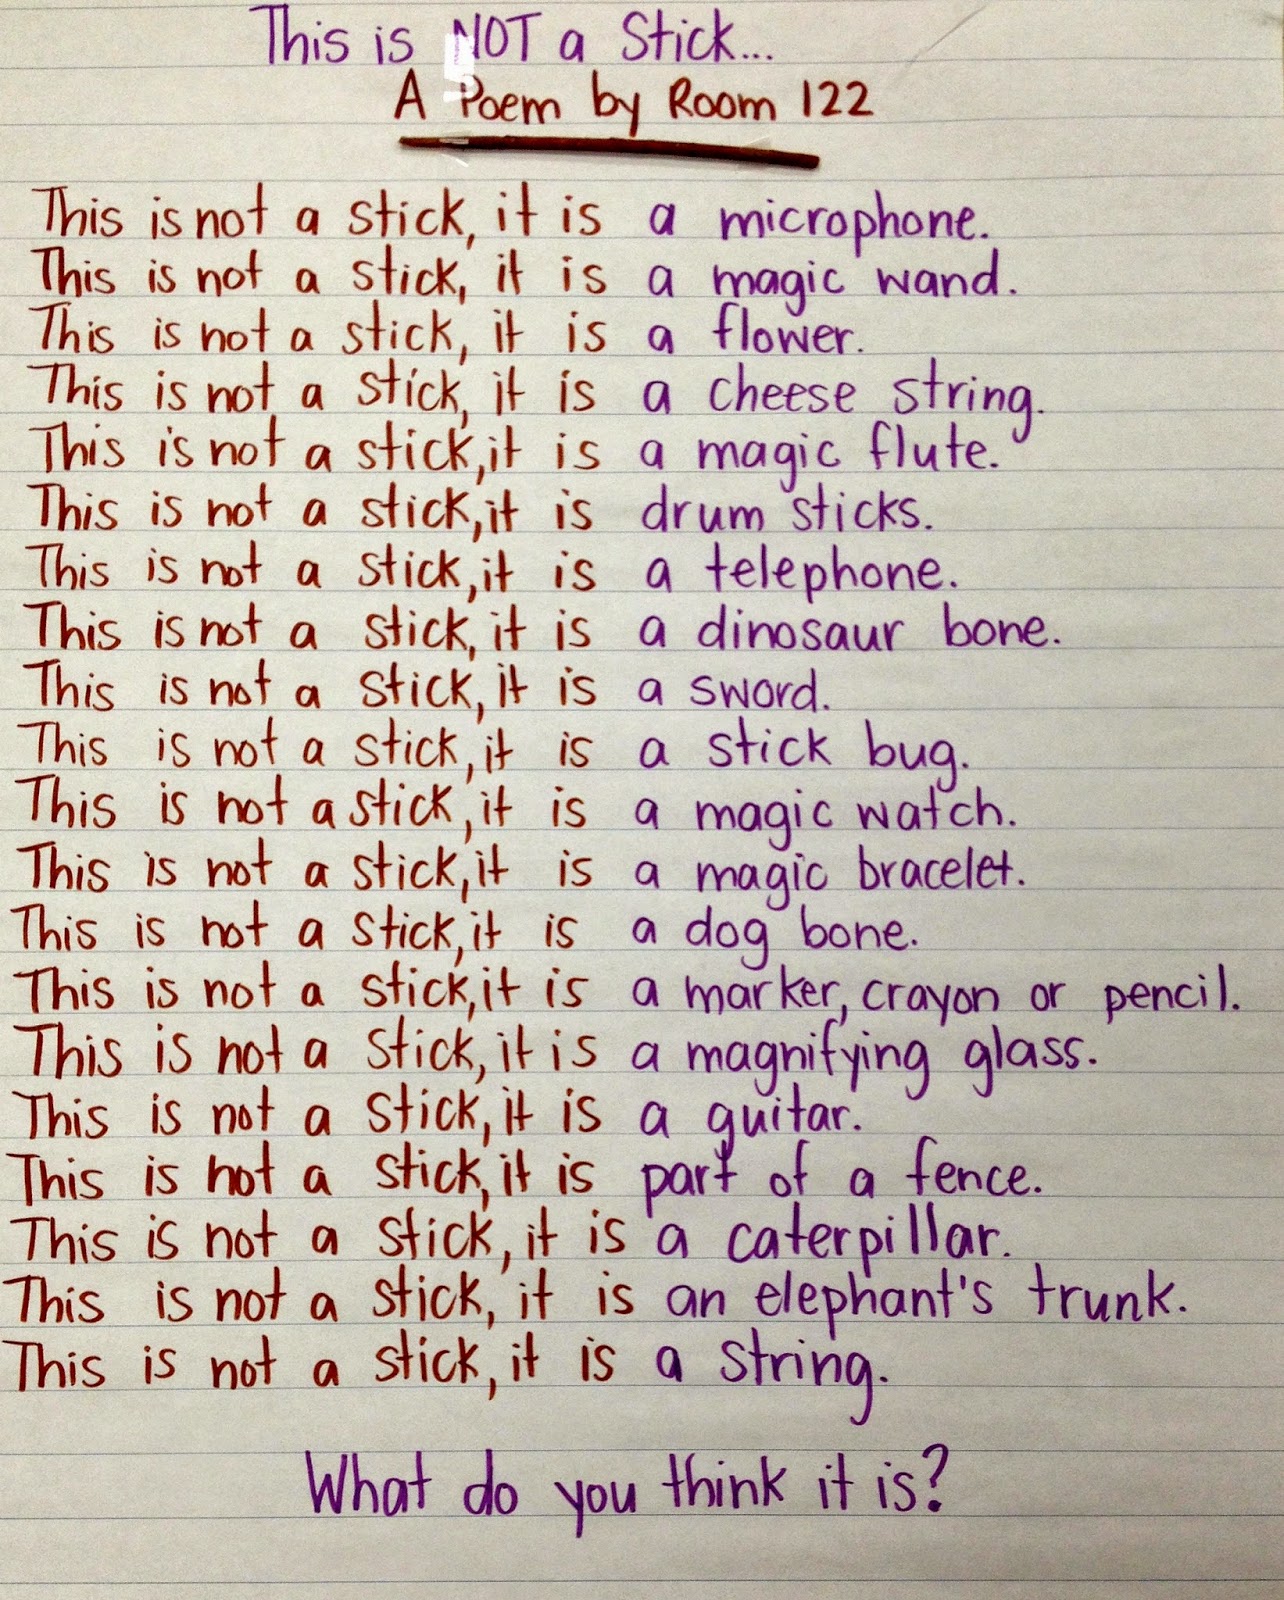 This is NOT a Stick...
A Poem by Room 122
This is not a stick, it is a microphone.
This is not a stick, it is a magic wand.
This is not a stick, it is a flower.
This is not a stick, it is a cheese string.
This is not a stick, it is a magic flute.
This is not a stick, it is drum sticks.
This is not a stick, it is a telephone.
This is not a stick, it is a dinosaur bone.
This is not a stick, it is a sword.
This is not a stick, it is a stick bug.
This is not a stick, it is a magic watch.
This is not a stick, it is a magic bracelet.
This is not a stick, it is a dog bone.
This is not a stick, it is a marker, crayon or pencil.
This is not a stick, it is a magnifying glass.
This is not a stick, it is a guitar.
This is not a stick, it is part of a fence.
This is not a stick, it is a caterpillar.
This is not a stick, it is an elephant's trunk.
This is not a stick, it is a string.
What do you think it is?